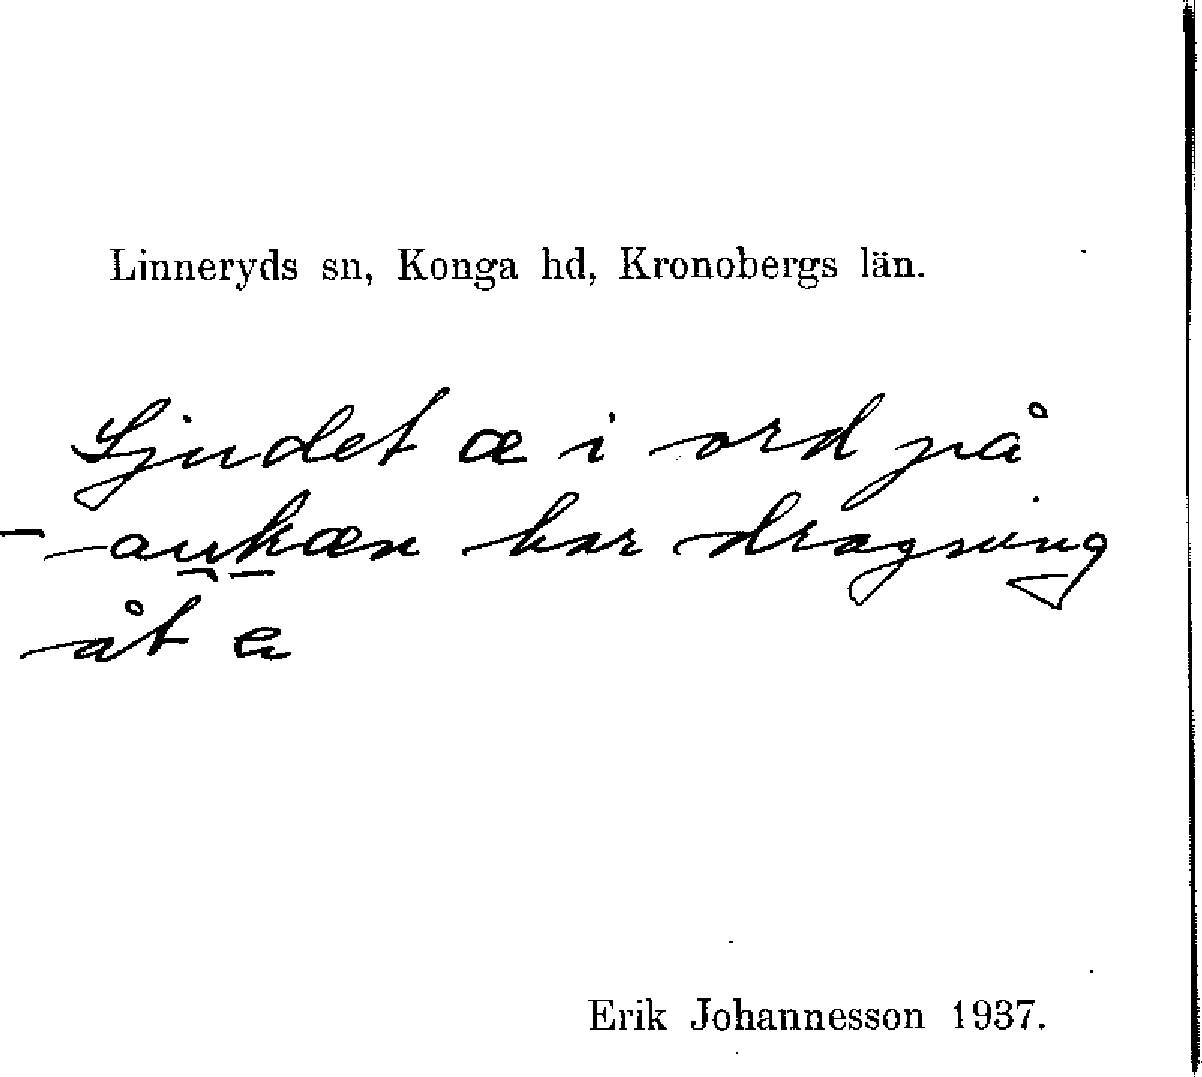 Linneryds sn, Konga hd, Kronobergs län.
Ljudet æ i ord på
-aukæn har dragning
åt
Erik Johannesson 1937.